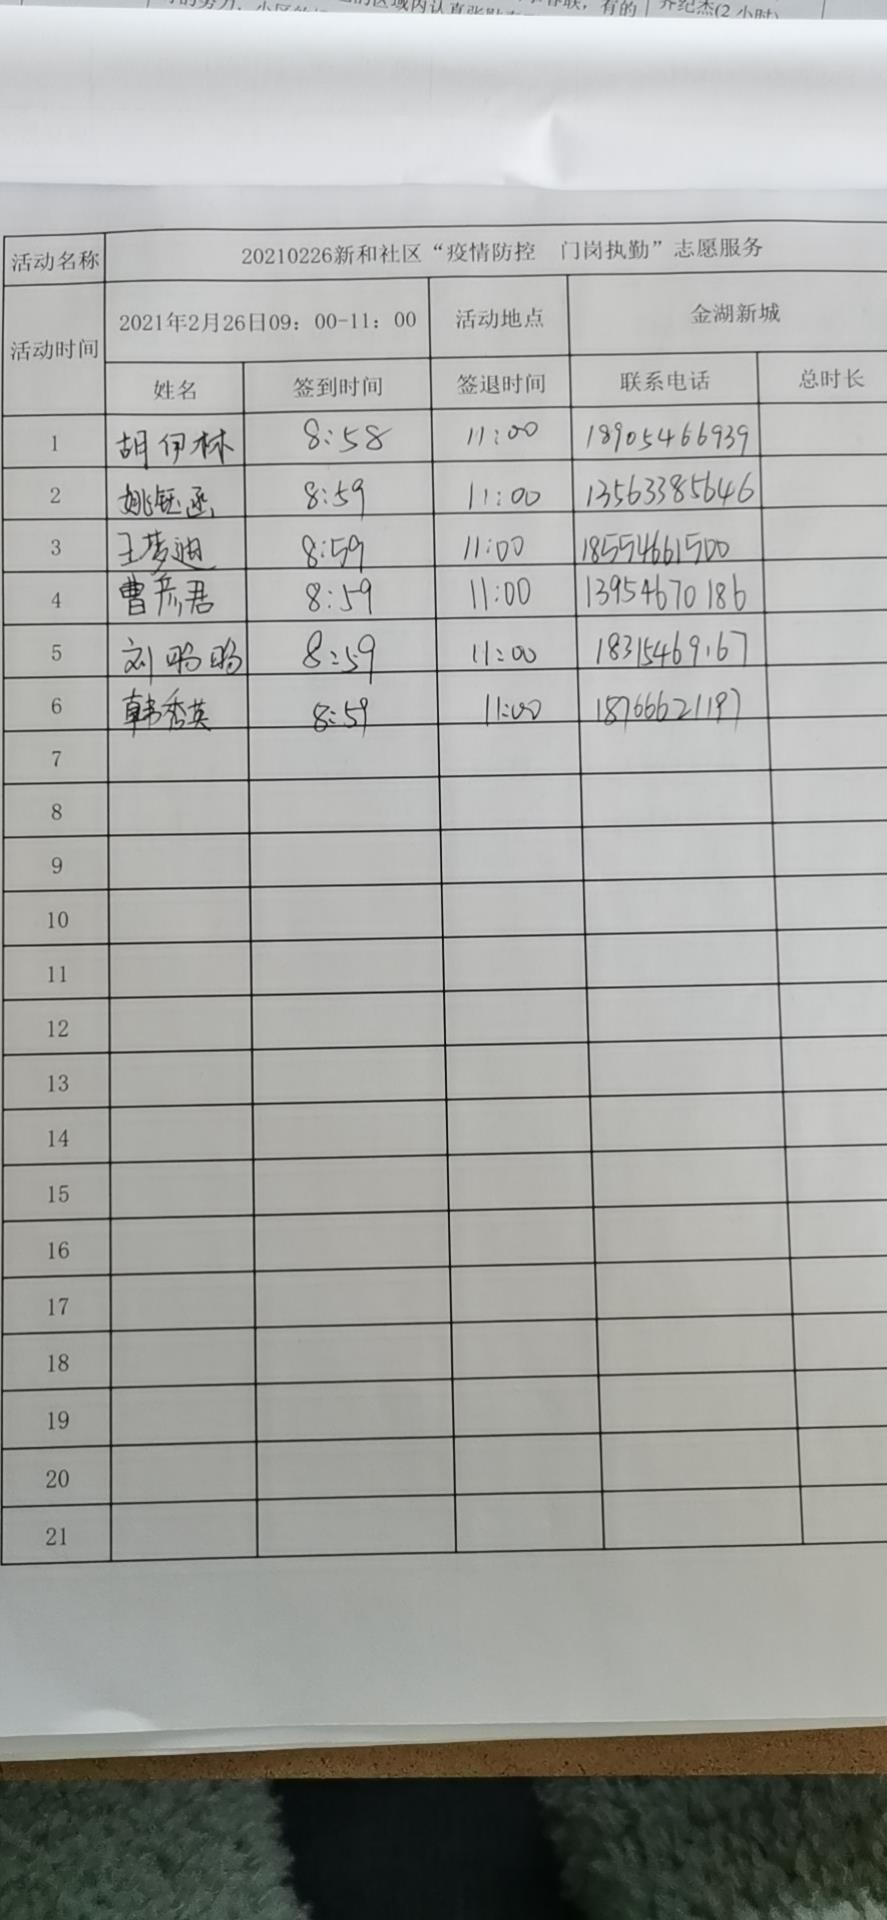 齐纪杰(2 小时)
活动名称 20210226新和社区“疫情防控 门岗执勤”志愿服务
活动时间 2021年2月26日09：00-11：00 活动地点 金湖新城
姓名 签到时间 签退时间 联系电话 总时长
1 胡伊林 8:58 11:00 18905466939
2 姚钰函 8:59 11:00 13563385646
3 王梦迪 8:59 11:00 18554661500
4 曹彦君 8:59 11:00 13954670186
5 刘 8:59 11:00 18315469167
6 韩秀英 8:59 11:00 18766621197
7
8
9
10
11
12
13
14
15
16
17
18
19
20
21